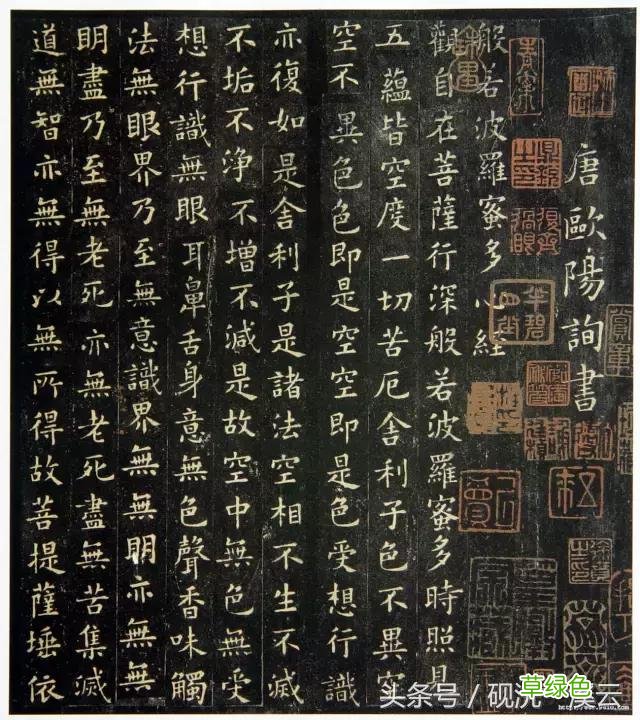 唐歐陽詢書
般若波羅蜜多心經
觀自在菩薩行深般若波羅蜜多時照見
五蘊皆空度一切苦厄舍利子色不異空
空不異色色即是空空即是色受想行識
亦復如是舍利子是諸法空相不生不滅
不垢不淨不增不減是故空中無色無受
想行識無眼耳鼻舌身意無色聲香味觸
法無眼界乃至無意識界無無明亦無無
明盡乃至無老死亦無老死盡無苦集滅
道無智亦無得以無所得故菩提薩埵依
头条号 / 砚云
草绿色